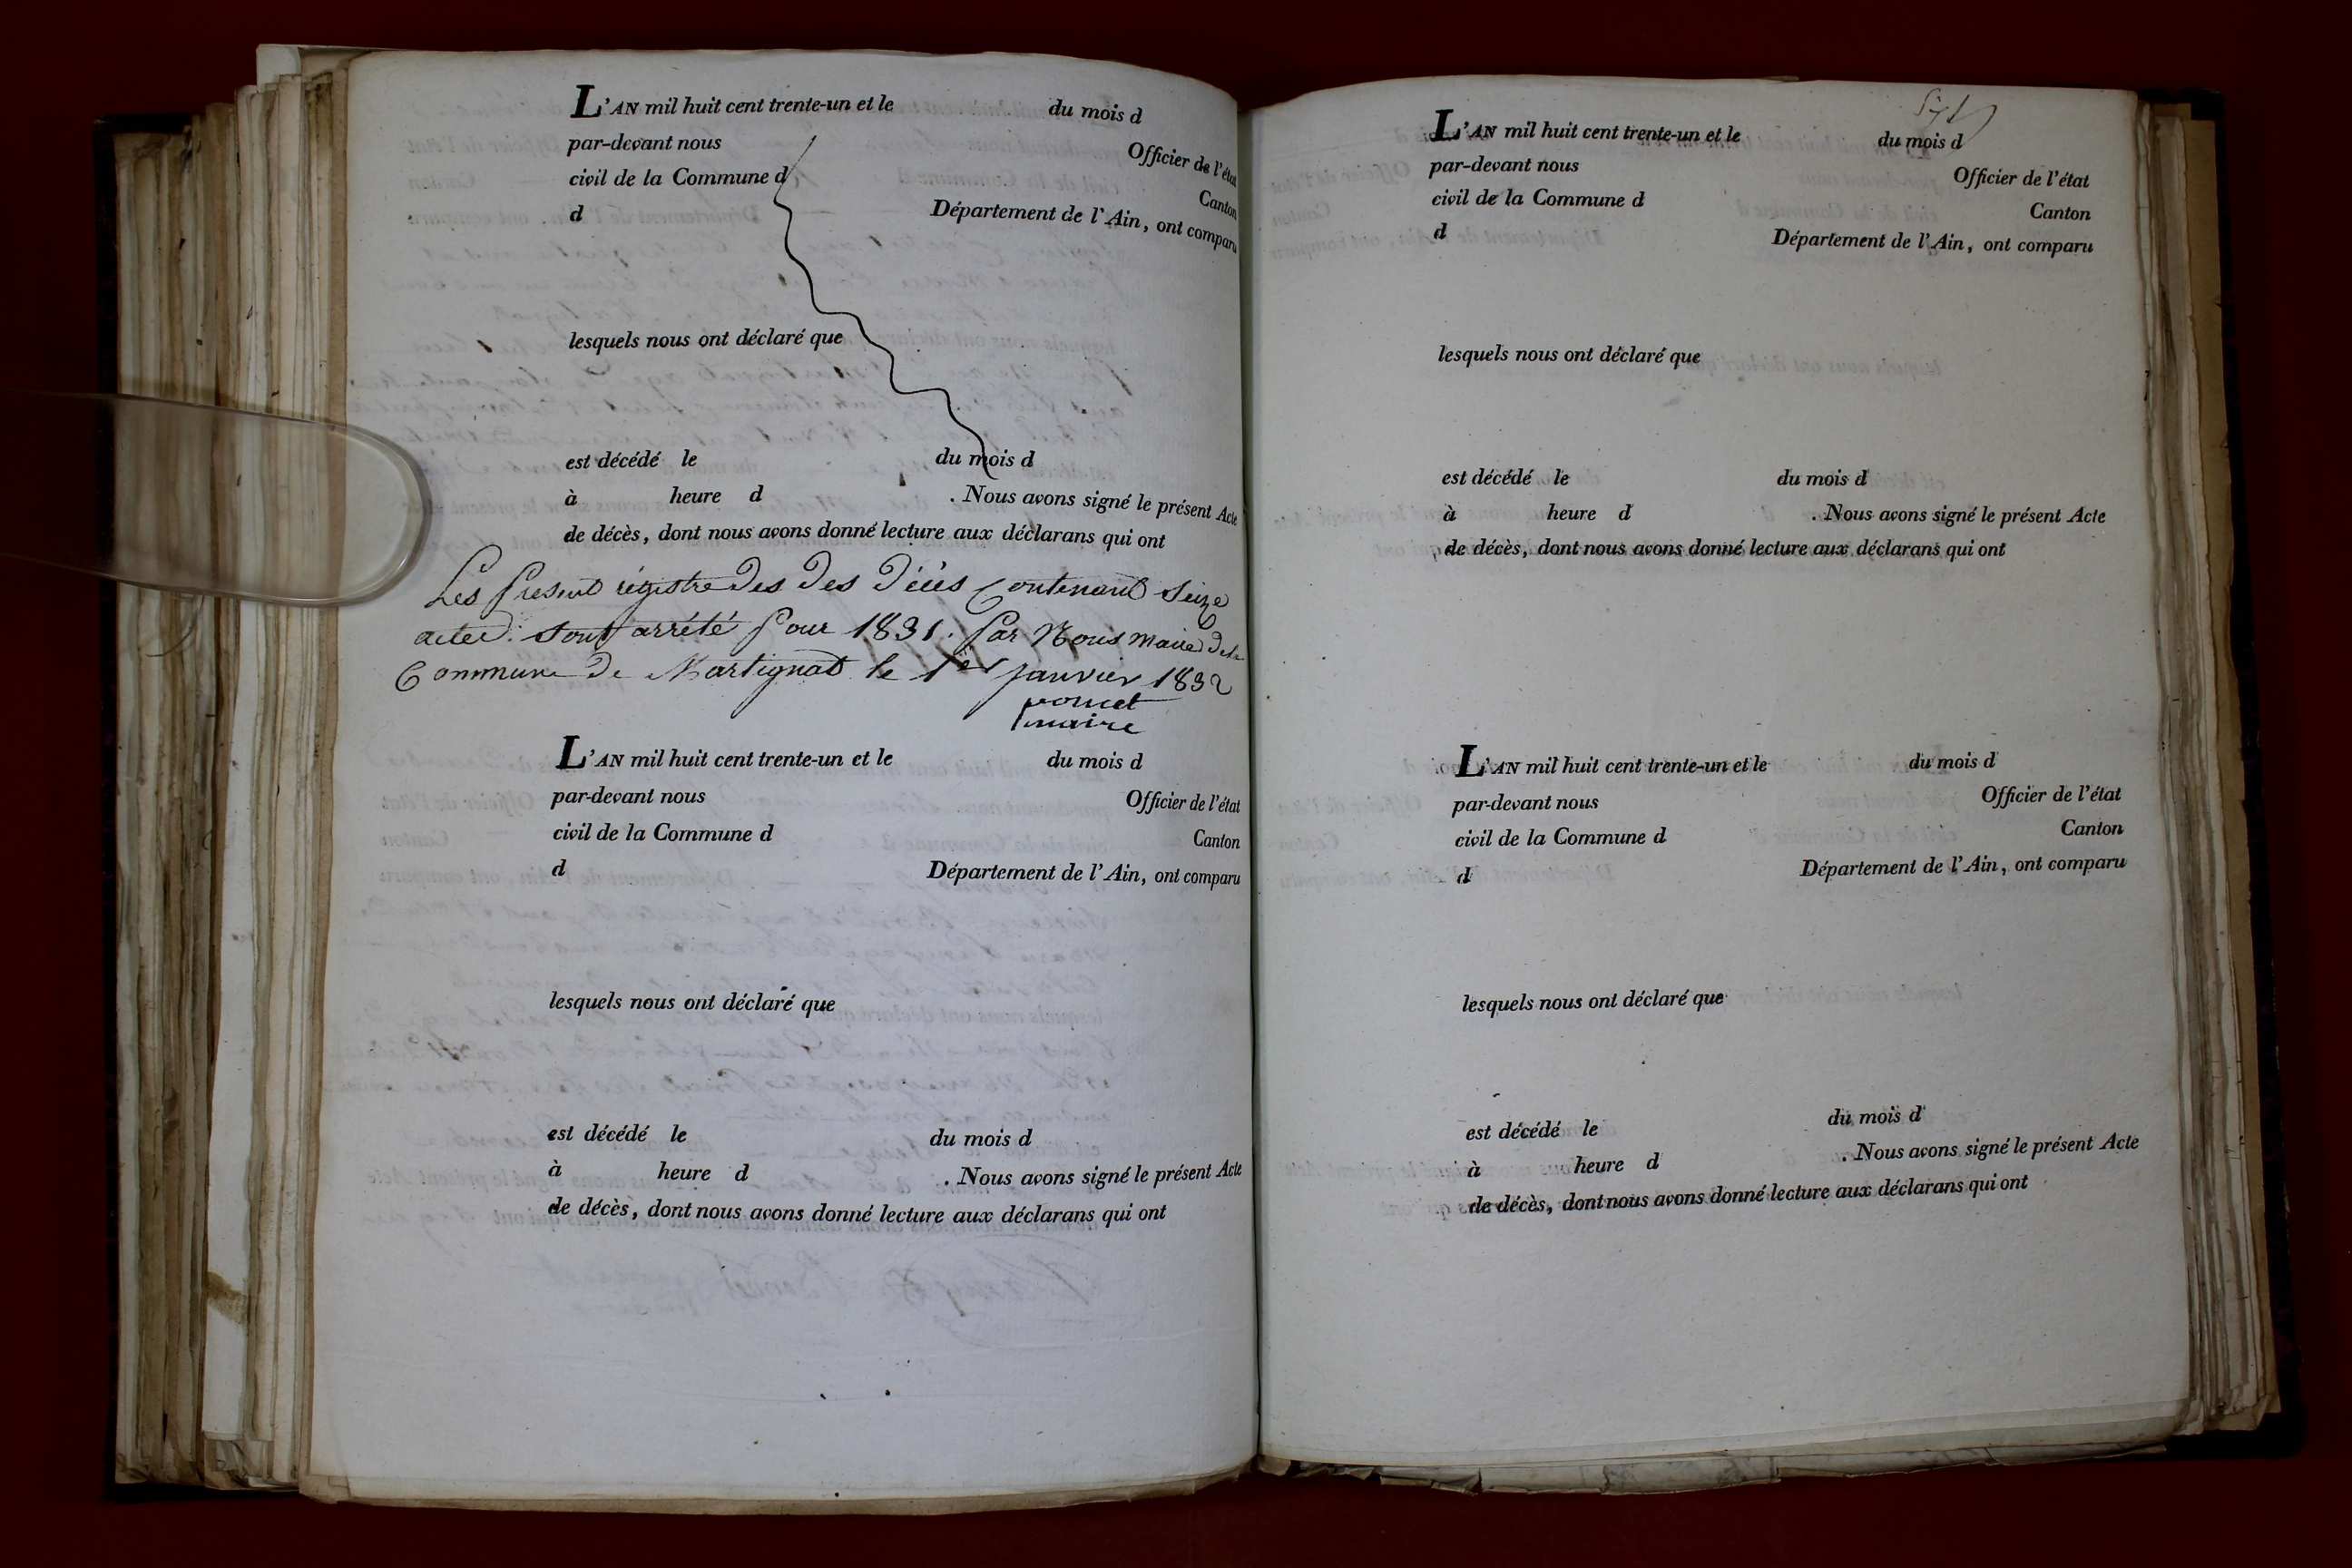 L'AN mil huit cent trente-un et le du mois d
par-devant nous Officier de l'état
civil de la Commune d Canton
d Département de l'Ain, ont comparu
lesquels nous ont déclaré que
est décédé le du mois d
à heure d . Nous avons signé le présent Acte
de décès, dont nous avons donné lecture aux déclarans qui ont
Les present régistre des des Décès Contenant Seize
actes sont arrêté pour 1831. par Nous maire de la
Commune de Martignat le 1er Janvier 1832
poncet
maire
L'AN mil huit cent trente-un et le du mois d
par-devant nous Officier de l'état
civil de la Commune d Canton
d Département de l'Ain, ont comparu
lesquels nous ont déclaré que
est décédé le du mois d
à heure d . Nous avons signé le présent Acte
de décès, dont nous avons donné lecture aux déclarans qui ont
L'AN mil huit cent trente-un et le du mois d
par-devant nous Officier de l'état
civil de la Commune d Canton
d Département de l'Ain, ont comparu
lesquels nous ont déclaré que
est décédé le du mois d
à heure d . Nous avons signé le présent Acte
de décès, dont nous avons donné lecture aux déclarans qui ont
L'AN mil huit cent trente-un et le du mois d
par-devant nous Officier de l'état
civil de la Commune d Canton
d Département de l'Ain, ont comparu
lesquels nous ont déclaré que
est décédé le du mois d
à heure d . Nous avons signé le présent Acte
de décès, dont nous avons donné lecture aux déclarans qui ont